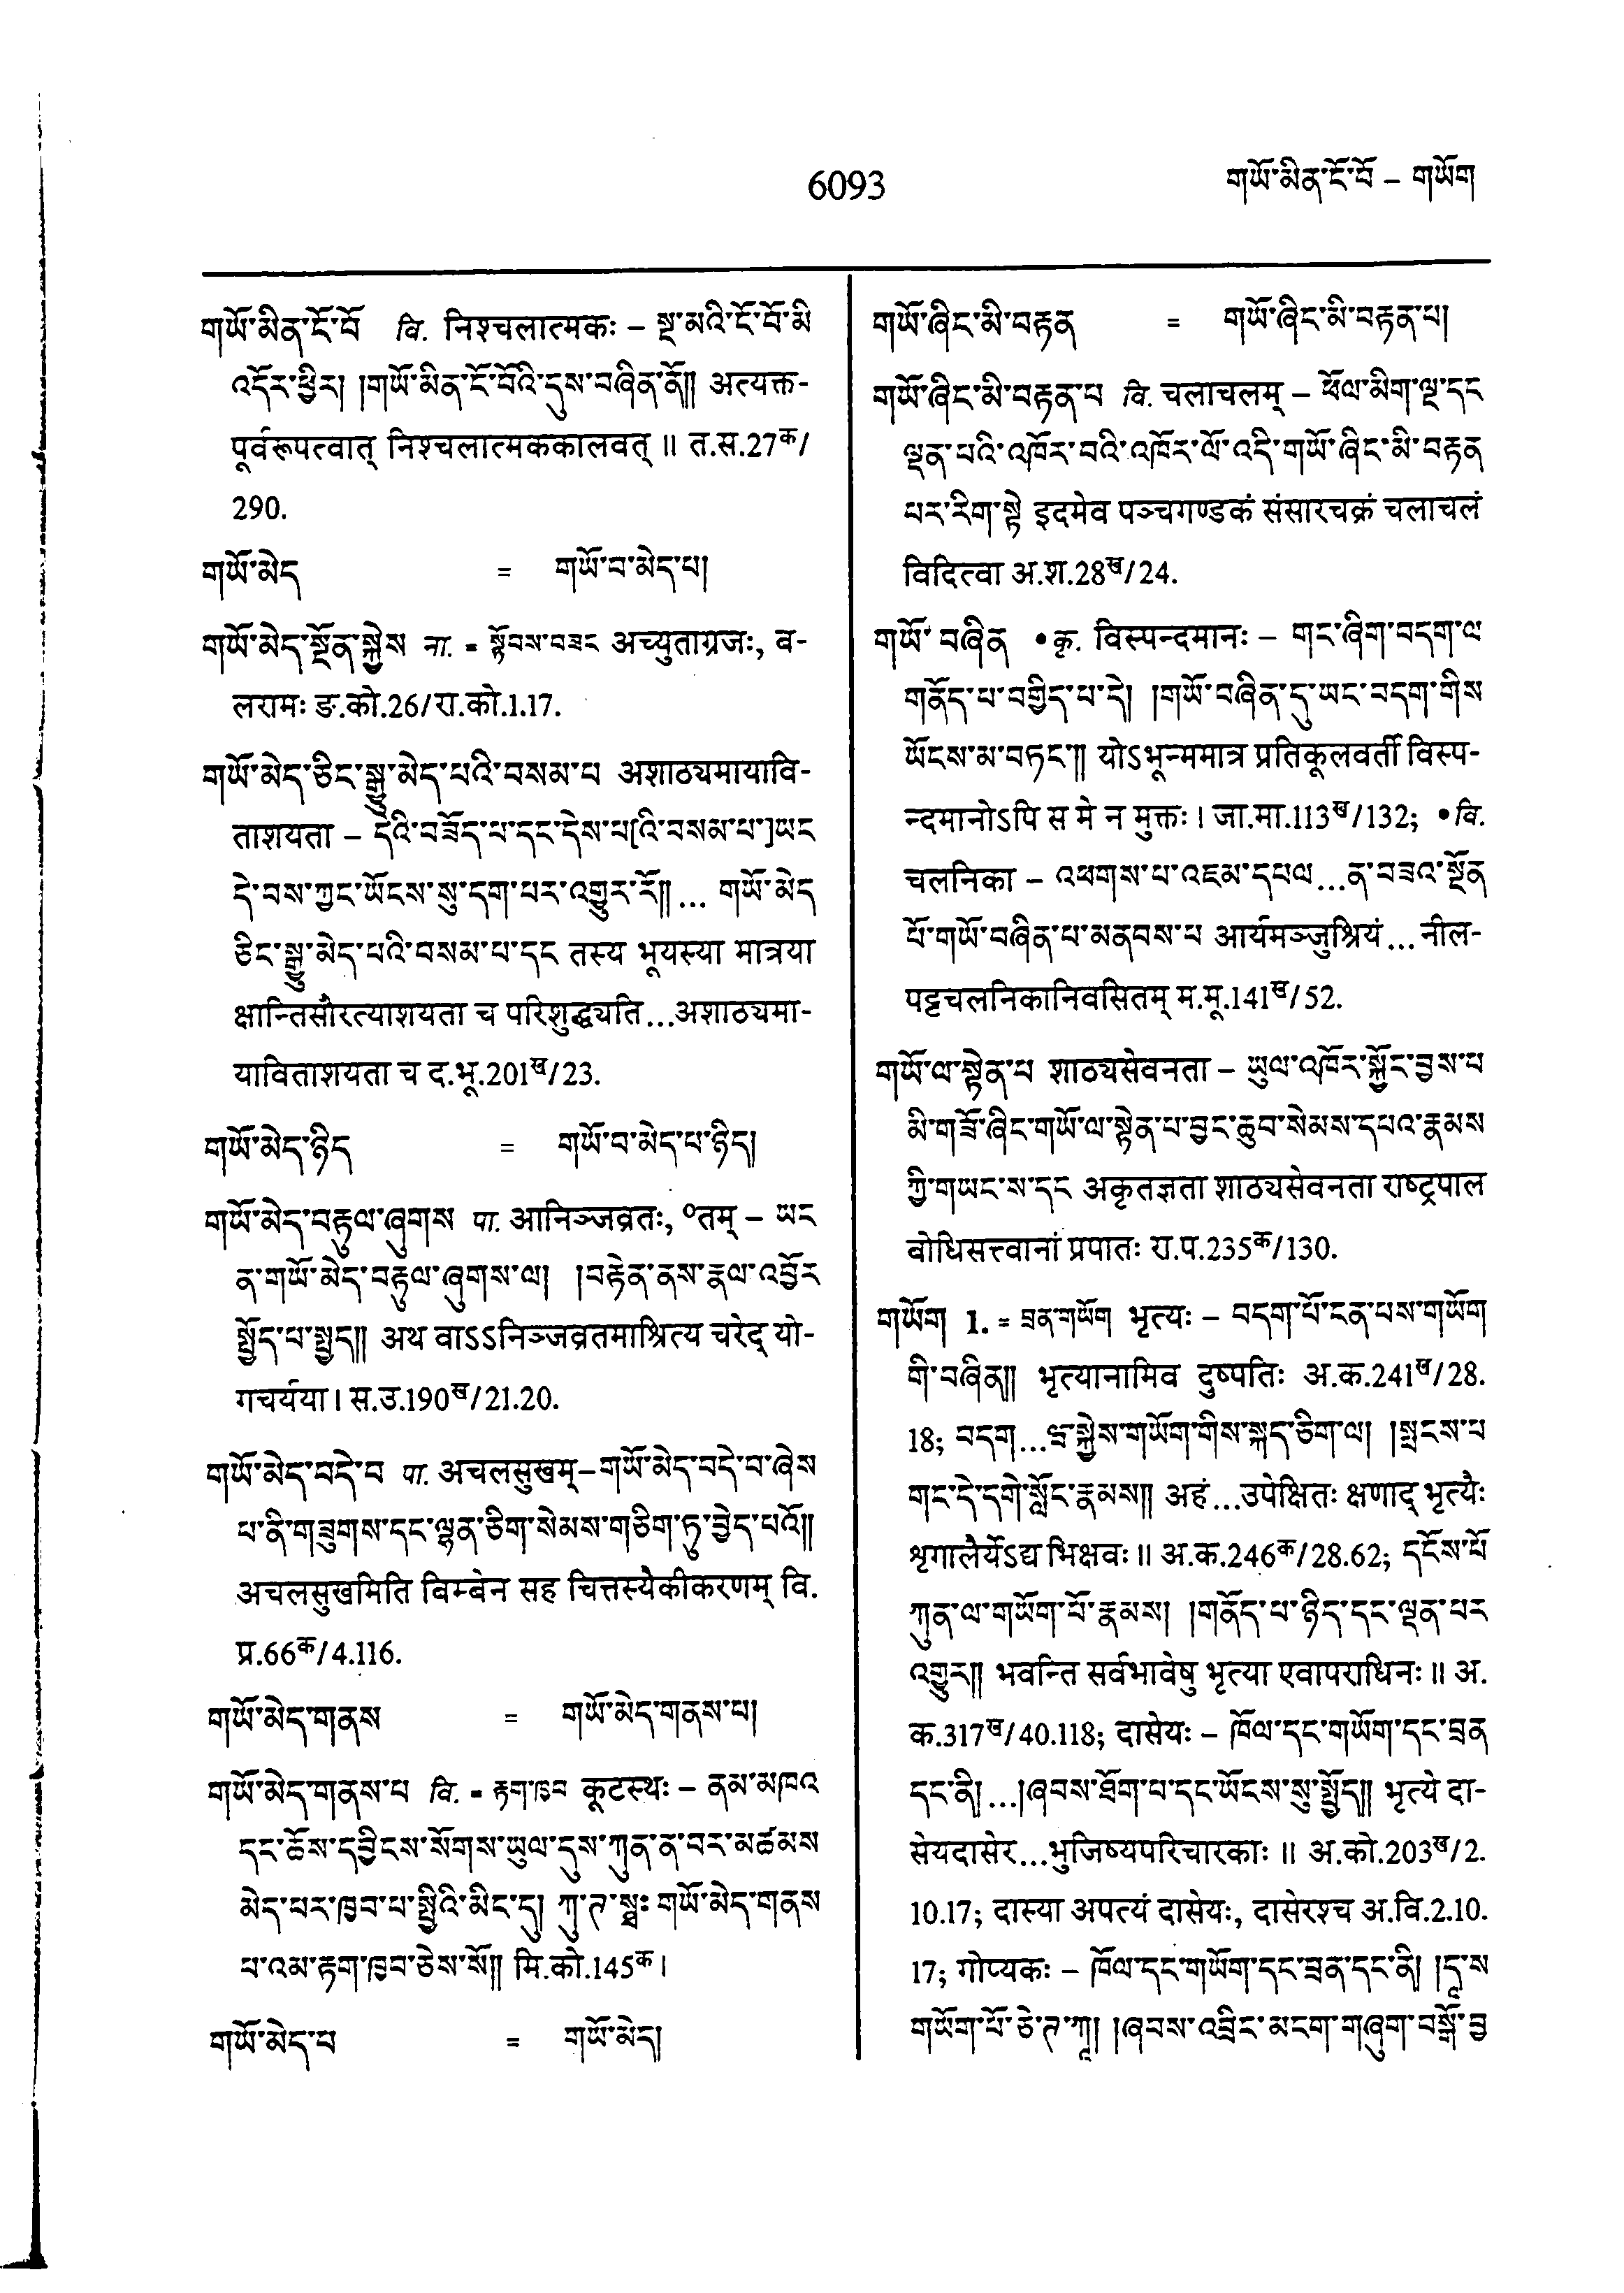 6093
གཡོ་མིན་ངོ་བོ – གཡོག
གཡོ་མིན་ངོ་བོ वि. निश्चलात्मकः – སྔ་མའི་ངོ་བོ་མི
འདོར་ཕྱིར། །གཡོ་མིན་ངོ་བོའི་དུས་བཞིན་ནོ།། अत्यक्त-
पूर्वरूपत्वात् निश्चलात्मककालवत् ॥ त.स.27क/
290.
གཡོ་མེད = གཡོ་བ་མེད་པ།
གཡོ་མེད་སྔོན་སྐྱེས ना. = སྟོབས་བཟང अच्युताग्रजः, ब-
लरामः ङ.को.26/रा.को.1.17.
གཡོ་མེད་ཅིང་སྒྱུ་མེད་པའི་བསམ་པ अशाठ्यमायावि-
ताशयता – དེའི་བཟོད་པ་དང་དེས་པ(འི་བསམ་པ་)ཡང
དེ་བས་ཀྱང་ཡོངས་སུ་དག་པར་འགྱུར་རོ།། … གཡོ་མེད
ཅིང་སྒྱུ་མེད་པའི་བསམ་པ་དང तस्य भूयस्या मात्रया
क्षान्तिसौरत्याशयता च परिशुद्ध्यति…अशाठ्यमा-
याविताशयता च द.भू.201ख/23.
གཡོ་མེད་ཉིད = གཡོ་བ་མེད་པ་ཉིད།
གཡོ་མེད་བརྟུལ་ཞུགས पा. आनिञ्जव्रतः, ॰तम् – ཡང
ན་གཡོ་མེད་བརྟུལ་ཞུགས་ལ། །བརྟེན་ནས་རྣལ་འབྱོར
སྤྱོད་པ་སྤྱད།། अथ वाऽऽनिञ्जव्रतमाश्रित्य चरेद् यो-
गचर्यया। स.उ.190ख/21.20.
གཡོ་མེད་བདེ་བ पा. अचलसुखम्–གཡོ་མེད་བདེ་བ་ཞེས
པ་ནི་གཟུགས་དང་ལྷན་ཅིག་སེམས་གཅིག་ཏུ་བྱེད་པའོ།།
अचलसुखमिति बिम्बेन सह चित्तस्यैकीकरणम् वि.
प्र.66क/4.116.
གཡོ་མེད་གནས = གཡོ་མེད་གནས་པ།
གཡོ་མེད་གནས་པ वि. = རྟག་ཁྱབ कूटस्थः – ནམ་མཁའ
དང་ཆོས་དབྱིངས་སོགས་ཡུལ་དུས་ཀུན་ན་བར་མཚམས
མེད་པར་ཁྱབ་པ་སྤྱིའི་མིང་དུ། ཀུ་ཊ་སྠཿ གཡོ་མེད་གནས
པ་འམ་རྟག་ཁྱབ་ཅེས་སོ།། मि.को.145क।
གཡོ་མེད་པ = གཡོ་མེད།
གཡོ་ཞིང་མི་བརྟན = གཡོ་ཞིང་མི་བརྟན་པ།
གཡོ་ཞིང་མི་བརྟན་པ वि. चलाचलम् – ཕོལ་མིག་ལྔ་དང
ལྡན་པའི་འཁོར་བའི་འཁོར་ལོ་འདི་གཡོ་ཞིང་མི་བརྟན
པར་རིག་སྟེ इदमेव पञ्चगण्डकं संसारचक्रं चलाचलं
विदित्वा अ.श.28ख/24.
གཡོ་བཞིན •कृ. विस्पन्दमानः – གང་ཞིག་བདག་ལ
གནོད་པ་བགྱིད་པ་དེ། །གཡོ་བཞིན་དུ་ཡང་བདག་གིས
ཡོངས་མ་བཏང་།། योऽभून्ममात्र प्रतिकूलवर्ती विस्प-
न्दमानोऽपि स मे न मुक्तः। जा.मा.113ख/132; •वि.
चलनिका – འཕགས་པ་འཇམ་དཔལ…ན་བཟའ་སྔོན
པོ་གཡོ་བཞིན་པ་མནབས་པ आर्यमञ्जुश्रियं… नील-
पट्टचलनिकानिवसितम् म.मू.141ख/52.
གཡོ་ལ་སྟེན་པ शाठ्यसेवनता – ཡུལ་འཁོར་སྐྱོང་བྱས་པ
མི་གཟོ་ཞིང་གཡོ་ལ་སྟེན་པ་བྱང་ཆུབ་སེམས་དཔའ་རྣམས
ཀྱི་གཡང་ས་དང अकृतज्ञता शाठ्यसेवनता राष्ट्रपाल
बोधिसत्त्वानां प्रपातः रा.प.235क/130.
གཡོག 1. = བྲན་གཡོག भृत्यः – བདག་པོ་ངན་པས་གཡོག
གི་བཞིན།། भृत्यानामिव दुष्पतिः अ.क.241ख/28.
18; བདག…ཝ་སྐྱེས་གཡོག་གིས་སྐད་ཅིག་ལ། །སྤངས་པ
གང་དེ་དགེ་སློང་རྣམས།། अहं…उपेक्षितः क्षणाद् भृत्यैः
शृगालैर्योऽद्य भिक्षवः॥ अ.क.246क/28.62; དངོས་པོ
ཀུན་ལ་གཡོག་པོ་རྣམས། །གནོད་པ་ཉིད་དང་ལྡན་པར
འགྱུར།། भवन्ति सर्वभावेषु भृत्या एवापराधिनः॥ अ.
क.317ख/40.118; दासेयः – ཁོལ་དང་གཡོག་དང་བྲན
དང་ནི།…།ཞབས་ཐོག་པ་དང་ཡོངས་སུ་སྤྱོད།། भृत्ये दा-
सेयदासेर…भुजिष्यपरिचारकाः॥ अ.को.203ख/2.
10.17; दास्या अपत्यं दासेयः, दासेरश्च अ.वि.2.10.
17; गोप्यकः – ཁོལ་དང་གཡོག་དང་བྲན་དང་ནི། །དཱ་ས
གཡོག་པོ་ཅེ་ཊ་ཀཱ། །ཞབས་འབྲིང་མངག་གཞུག་བསྒོ་བྱ